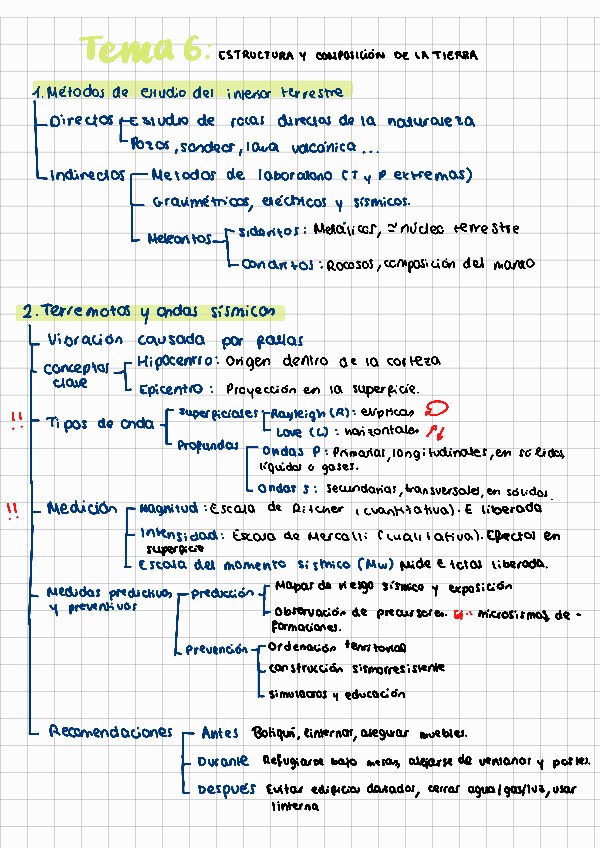 Tema 6: ESTRUCTURA Y COMPOSICIÓN DE LA TIERRA
1. Métodos de estudio del interior terrestre
Directos Estudio de rocas directas de la naturaleza
Pozos, sondeos, lava volcánica ...
Indirectos Metodos de laboratorio (T y P extremas)
Gravimétricos, eléctricos y sísmicos.
Meteoritos Sideritos: Metálicos, núcleo terrestre
Condritos: Rocosos, composición del manto
2. Terremotos y ondas sísmicas
Vibración causada por fallas
Conceptos clave Hipocentro: Origen dentro de la corteza
Epicentro: Proyección en la superficie.
!! Tipos de onda Superficiales Rayleigh (R): elípticas
Love (L): horizontales
Profundas Ondas P: Primarias, longitudinales, en sólidos
líquidos o gases.
Ondas S: Secundarias, transversales, en sólidos.
!! Medición Magnitud: Escala de Richer (cuantitativa). E liberada
Intensidad: Escala de Mercalli (cualitativa). Efectos en
superficie
Escala del momento sísmico (Mw) Mide E total liberada.
Medidas predictivas Predicción Mapas de riesgo sísmico y exposición
y preventivas
Observación de precursores. microsismos de-
formaciones.
Prevención Ordenación territorial
Construcción sismorresistente
Simulacros y educación
Recomendaciones Antes Botiquí, linternas, asegurar muebles.
Durante Refugiarse bajo mesas, alejarse de ventanas y postes.
Después Evitar edificios dañados, cerrar agua/gas/luz, usar
linterna